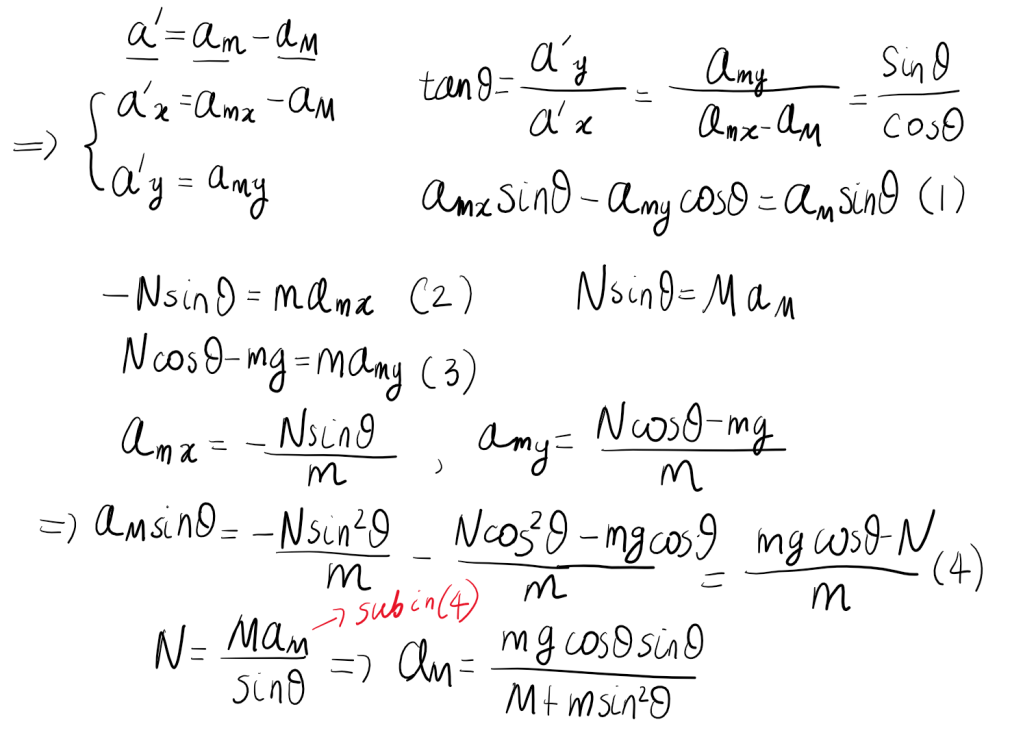 a' = a_m - a_M
=> { a'x = a_mx - a_M
a'y = a_my
tanθ = a'y / a'x = a_my / (a_mx - a_M) = sinθ / cosθ
a_mx sinθ - a_my cosθ = a_M sinθ (1)
-N sinθ = m a_mx (2)
N sinθ = M a_M
N cosθ - mg = m a_my (3)
a_mx = - N sinθ / m , a_my = (N cosθ - mg) / m
=> a_M sinθ = - N sin²θ / m - (N cos²θ - mg cosθ) / m = (mg cosθ - N) / m (4)
→ sub in (4)
N = M a_M / sinθ => a_M = mg cosθ sinθ / (M + m sin²θ)